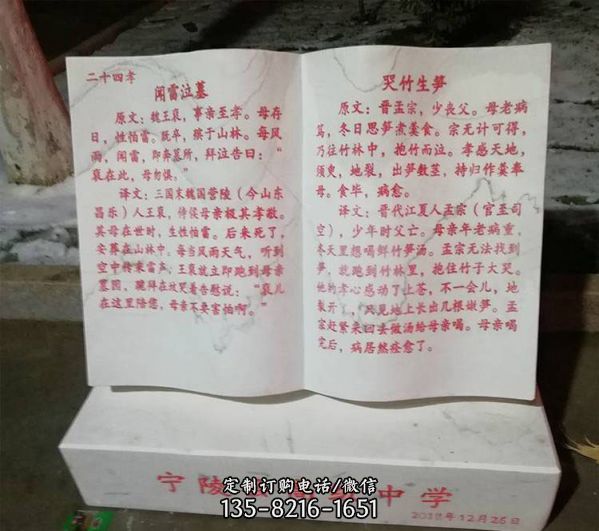 二十四孝
闻雷泣墓
原文:魏王裒,事亲至孝。母存
日,性怕雷。既卒,殡于山林。每风
雨,闻雷,即奔墓所,拜泣告曰:“
裒在此,母勿惧。”
译文:三国末魏国营陵(今山东
昌乐)人王裒,侍侯母亲极其孝敬。
其母在世时,生性怕雷。后来死了,
安葬在山林中。每当风雨天气,听到
空中传来雷声,王裒就立即跑到母亲
墓园,跪拜在坟哭着告慰说:“裒儿
在这里陪您,母亲不要害怕啊。
哭竹生笋
原文:晋孟宗,少丧父。母老病
笃,冬日思笋煮羹食。宗无计可得,
乃往竹林中,抱竹而泣。孝感天地,
须臾,地裂,出笋数茎,持归作羹奉
母。食毕,病愈。
译文:晋代江夏人孟宗(官至司
空),少年时父亡。母亲年老病重,
冬天里想喝鲜竹笋汤。孟宗无法找到
笋,就跑到竹林里,抱住竹子大哭。
他的孝心感动了上苍,不一会儿,地
裂开了,只见地上长出几根嫩笋。孟
宗赶紧采回去做汤给母亲喝。母亲喝
完后,病居然痊愈了。
宁陵 中学
定制订购电话/微信
135-8216-1651
2018年12月26日